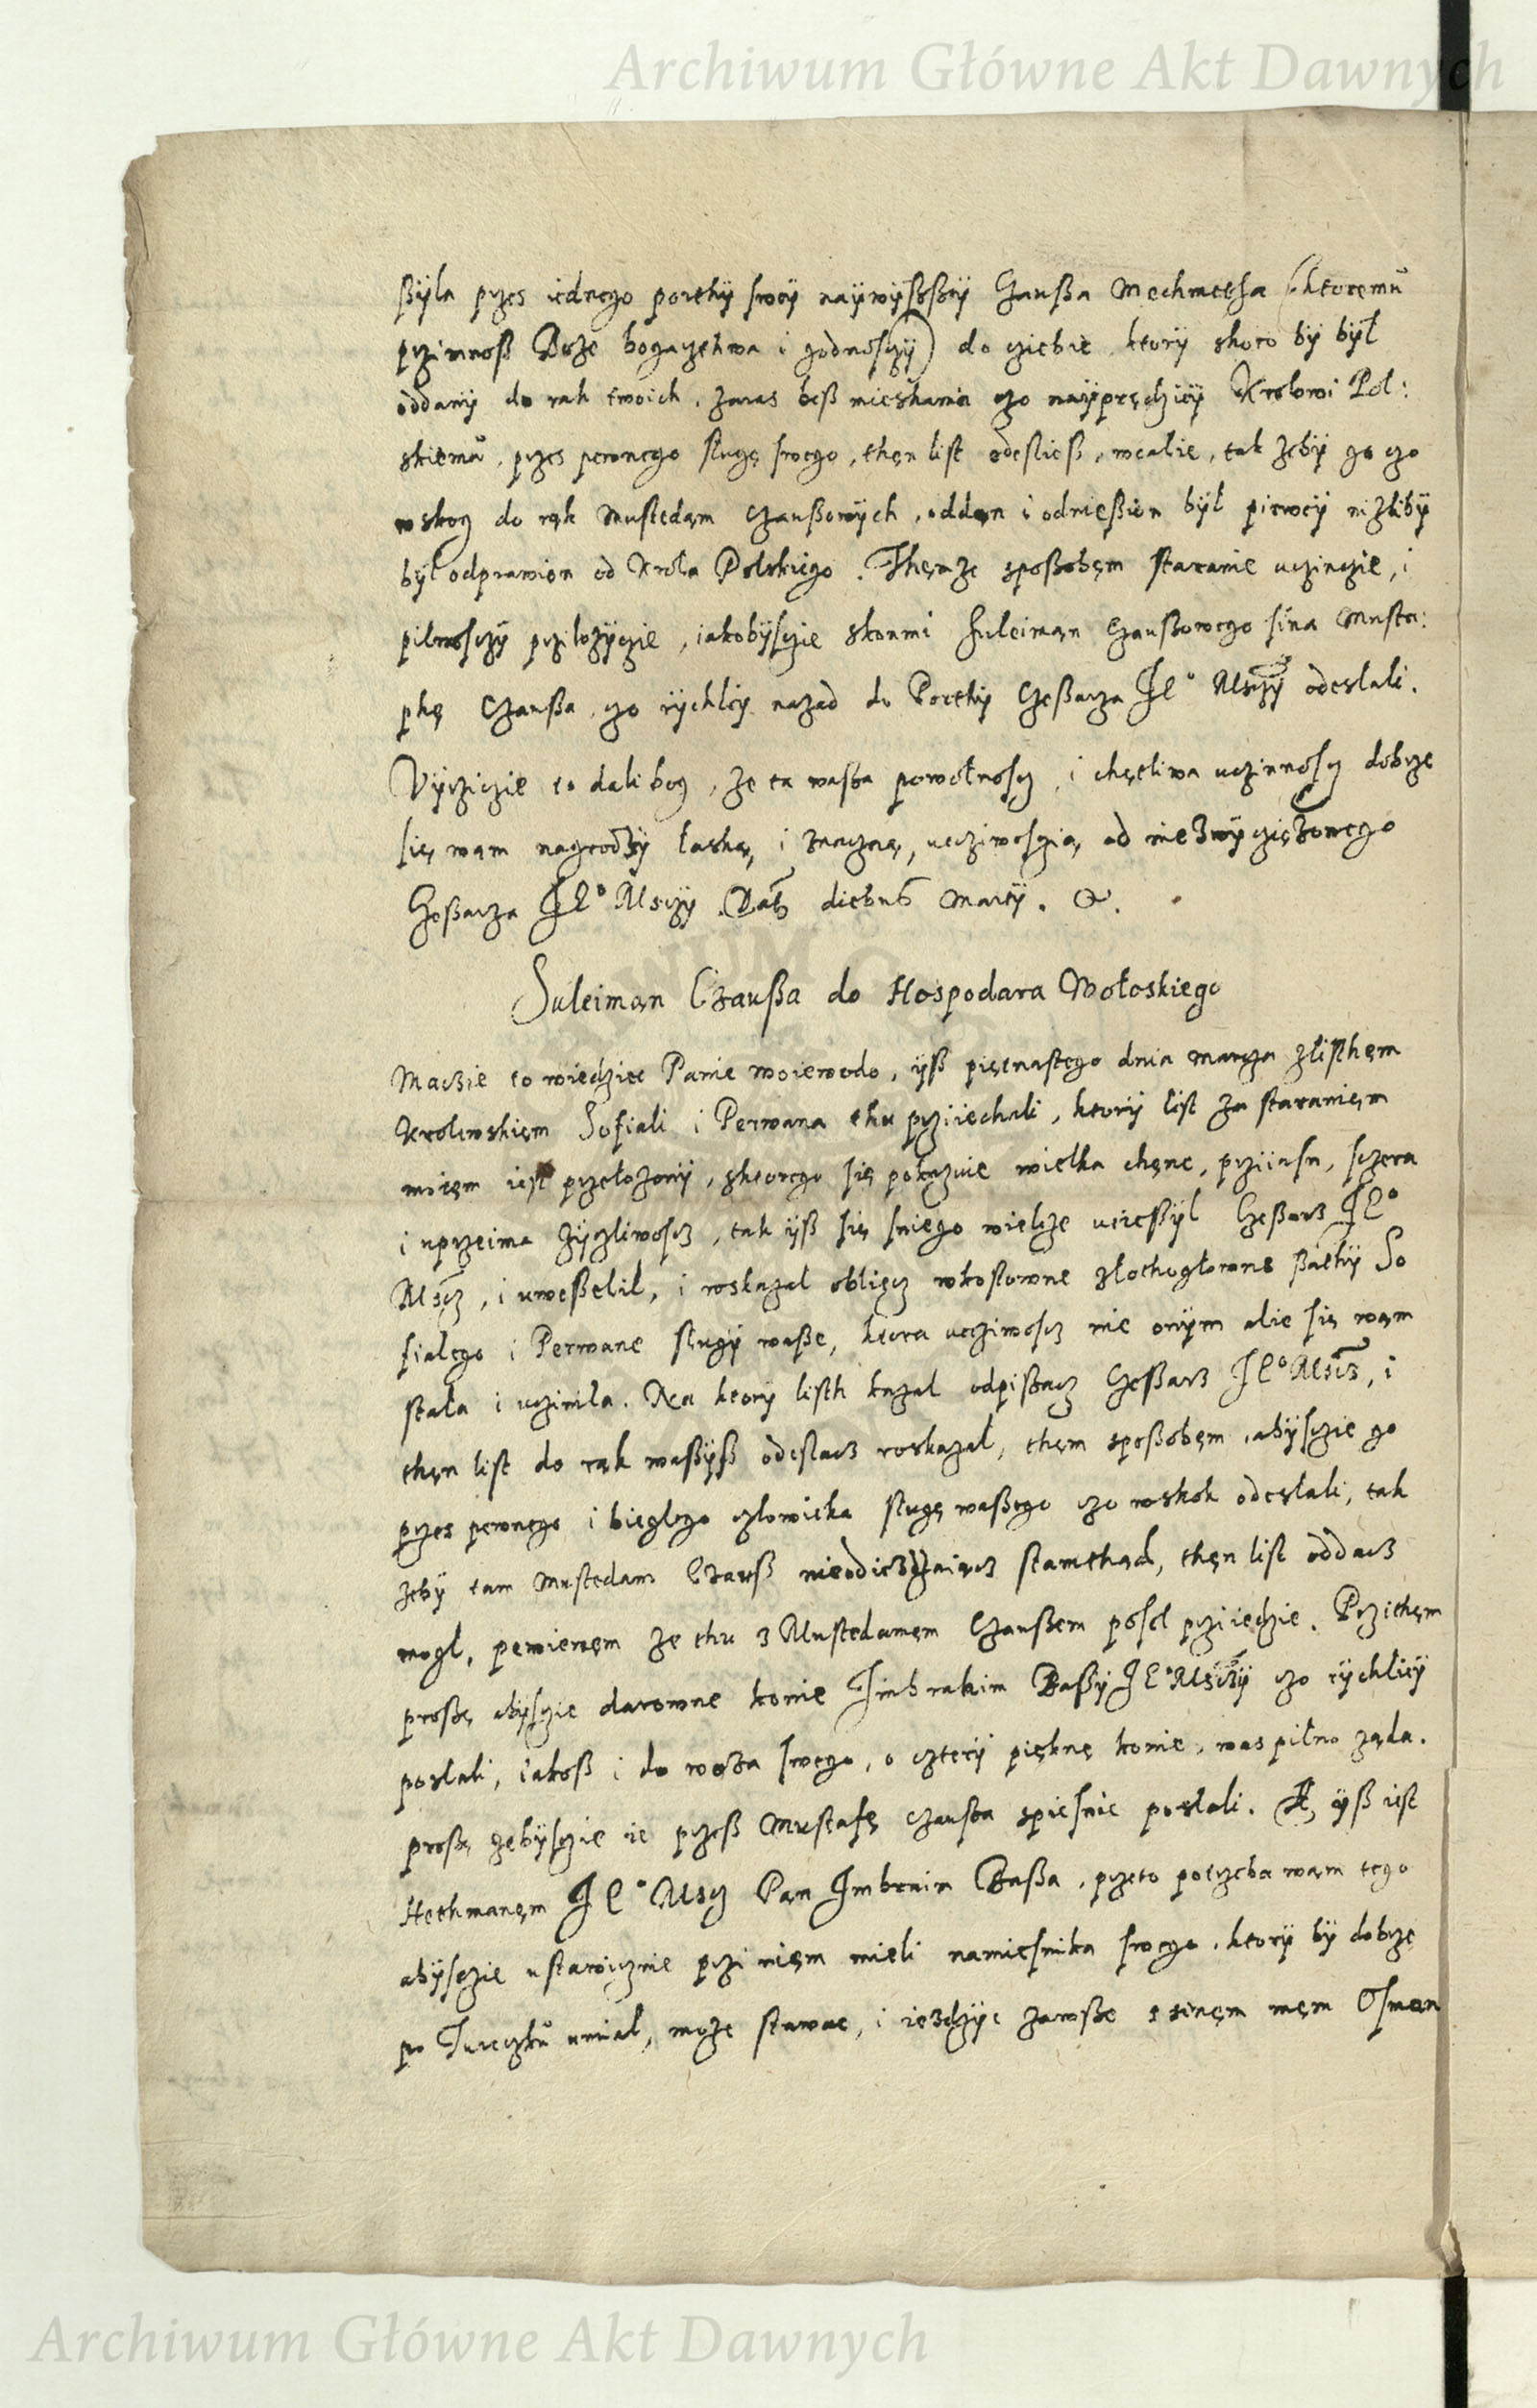 Archiwum Główne Akt Dawnych
ßÿla przes iednego porthÿ sweÿ naÿwÿßßeÿ Czaußa Mechmetha (ktoremu
prziwnoß Boże bogaczthwa i godnosczÿ) do cziebie, ktorÿ skoro bÿ bÿł
oddanÿ do rąk twoich, zaras beß mieskania czo naÿprędzieÿ Krolowi Pol:
skiemu, przes pewnego sługę swego, thęn list odesließ, wcalie, tak żebÿ go czo
wskog do rąk Mustedąm Czaußowÿch, oddąn i odnießion bÿł pierweÿ niżlibÿ
bÿł odprawion od Krola Polskiego. Thęmże sposßobęm staranie uczinczie, i
pilnosczÿ prziłożÿczie, iakobÿsczie skonmi Suleiman Czaußowego sina Musta:
phę Czaußa, czo rÿchleÿ nazad do Porthÿ Czeßarza JEº Msczÿ odeslali.
Vÿrziczie to dali bog, że ta waßa powolnoscz, i chętliwa uczinnoscz dobrze
się wąm nagrodzÿ łaską, i znaczną, uczciwosczią, od niezwÿcziężonego
Czeßarza JEº Msczÿ. Dat diebus Martÿ. &.
Suleiman Czaußa do Hospodara Wołoskiego
Maczie to wiedziec Panie woiewodo, ÿß piętnastego dnia marcza zlisthęm
Krolewskięm Sofiali i Perwana thu prziiechali, ktorÿ list za staranięm
moięm iest przełożonÿ, zktorego się pokazuie wielka chęnc, prziiasn, sczera
i uprzeima żÿczliwoscz, tak ÿß się sniego wielcze ucießÿl Czeßarz JEº
Mscz, i uweßelil, i wskazal oblięcz wkostowne złothogłowne ßathÿ So
fialego i Perwane sługÿ waße, ktora uczciwoscz nie onÿm alie się wąm
stała i uczinila. Na ktorÿ listh kazal odpißacz Czeßarz JEº Mscz, i
thęn list do rąk waßÿß odesłacz roskazal, thęm sposßobęm, abÿsczie go
przes pewnego i bieglego człowieka sługę waßego czo wskok odeslali, tak
żebÿ tam Mustedam Czauß nieodieżdżaiącz stamthąd, thęn list oddacz
mogl, pewienęm że thu z Mustedamęm Czaußem poseł prziiedzie. Przithęm
proßę abÿsczie darowne konie Imbrahim Baßÿ JEº Msczÿ czo rÿchleÿ
poslali, iakoß i do woza swego, o czterÿ pięknę konie, was pilno żąda.
proßę żebÿsczie ie przeß Mustafę czaußa spiesnie poslali. A, ÿß iest
Hethmanęm JEº Mscz Pąn Imbraim Baßa, przeto potrzeba wąm tego
abÿsczie ustawicznie przi nięm mieli namiesnika swego, ktorÿ bÿ dobrze
po Tureczku umial, może stawac, i iezdzÿc zawsße s sinęm męm Osman
Archiwum Główne Akt Dawnych